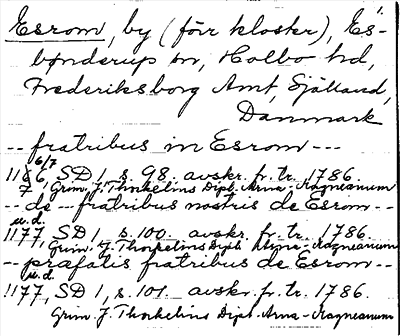 Esrom, by (förr kloster), Es-
bønderup sn, Holbo hd,
Frederiksborg Amt, Sjælland,
Danmark
-- fratribus in Esrom ---
6/7
1176, SD 1, s. 98. avskr. fr. tr. 1786.
Grim. J. Thorkelins Dipl. Arna-Magneanum
-- de -- fratribus nostris de Esrom --
u.d.
1177, SD 1, s. 100. avskr. fr. tr. 1786.
Grim. J. Thorkelins Dipl. Arna-Magneanum
-- præfatis fratribus de Esrom --
u.d.
1177, SD 1, s. 101. avskr. fr. tr. 1786.
Grim. J. Thorkelins Dipl. Arna-Magneanum